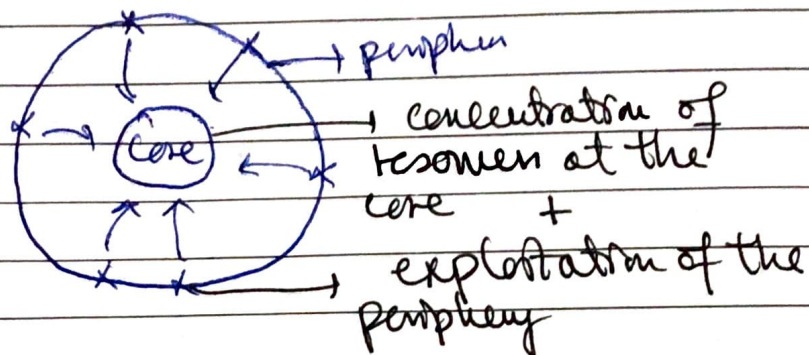 periphery
Core
concentration of
resources at the
core +
exploitation of the
periphery